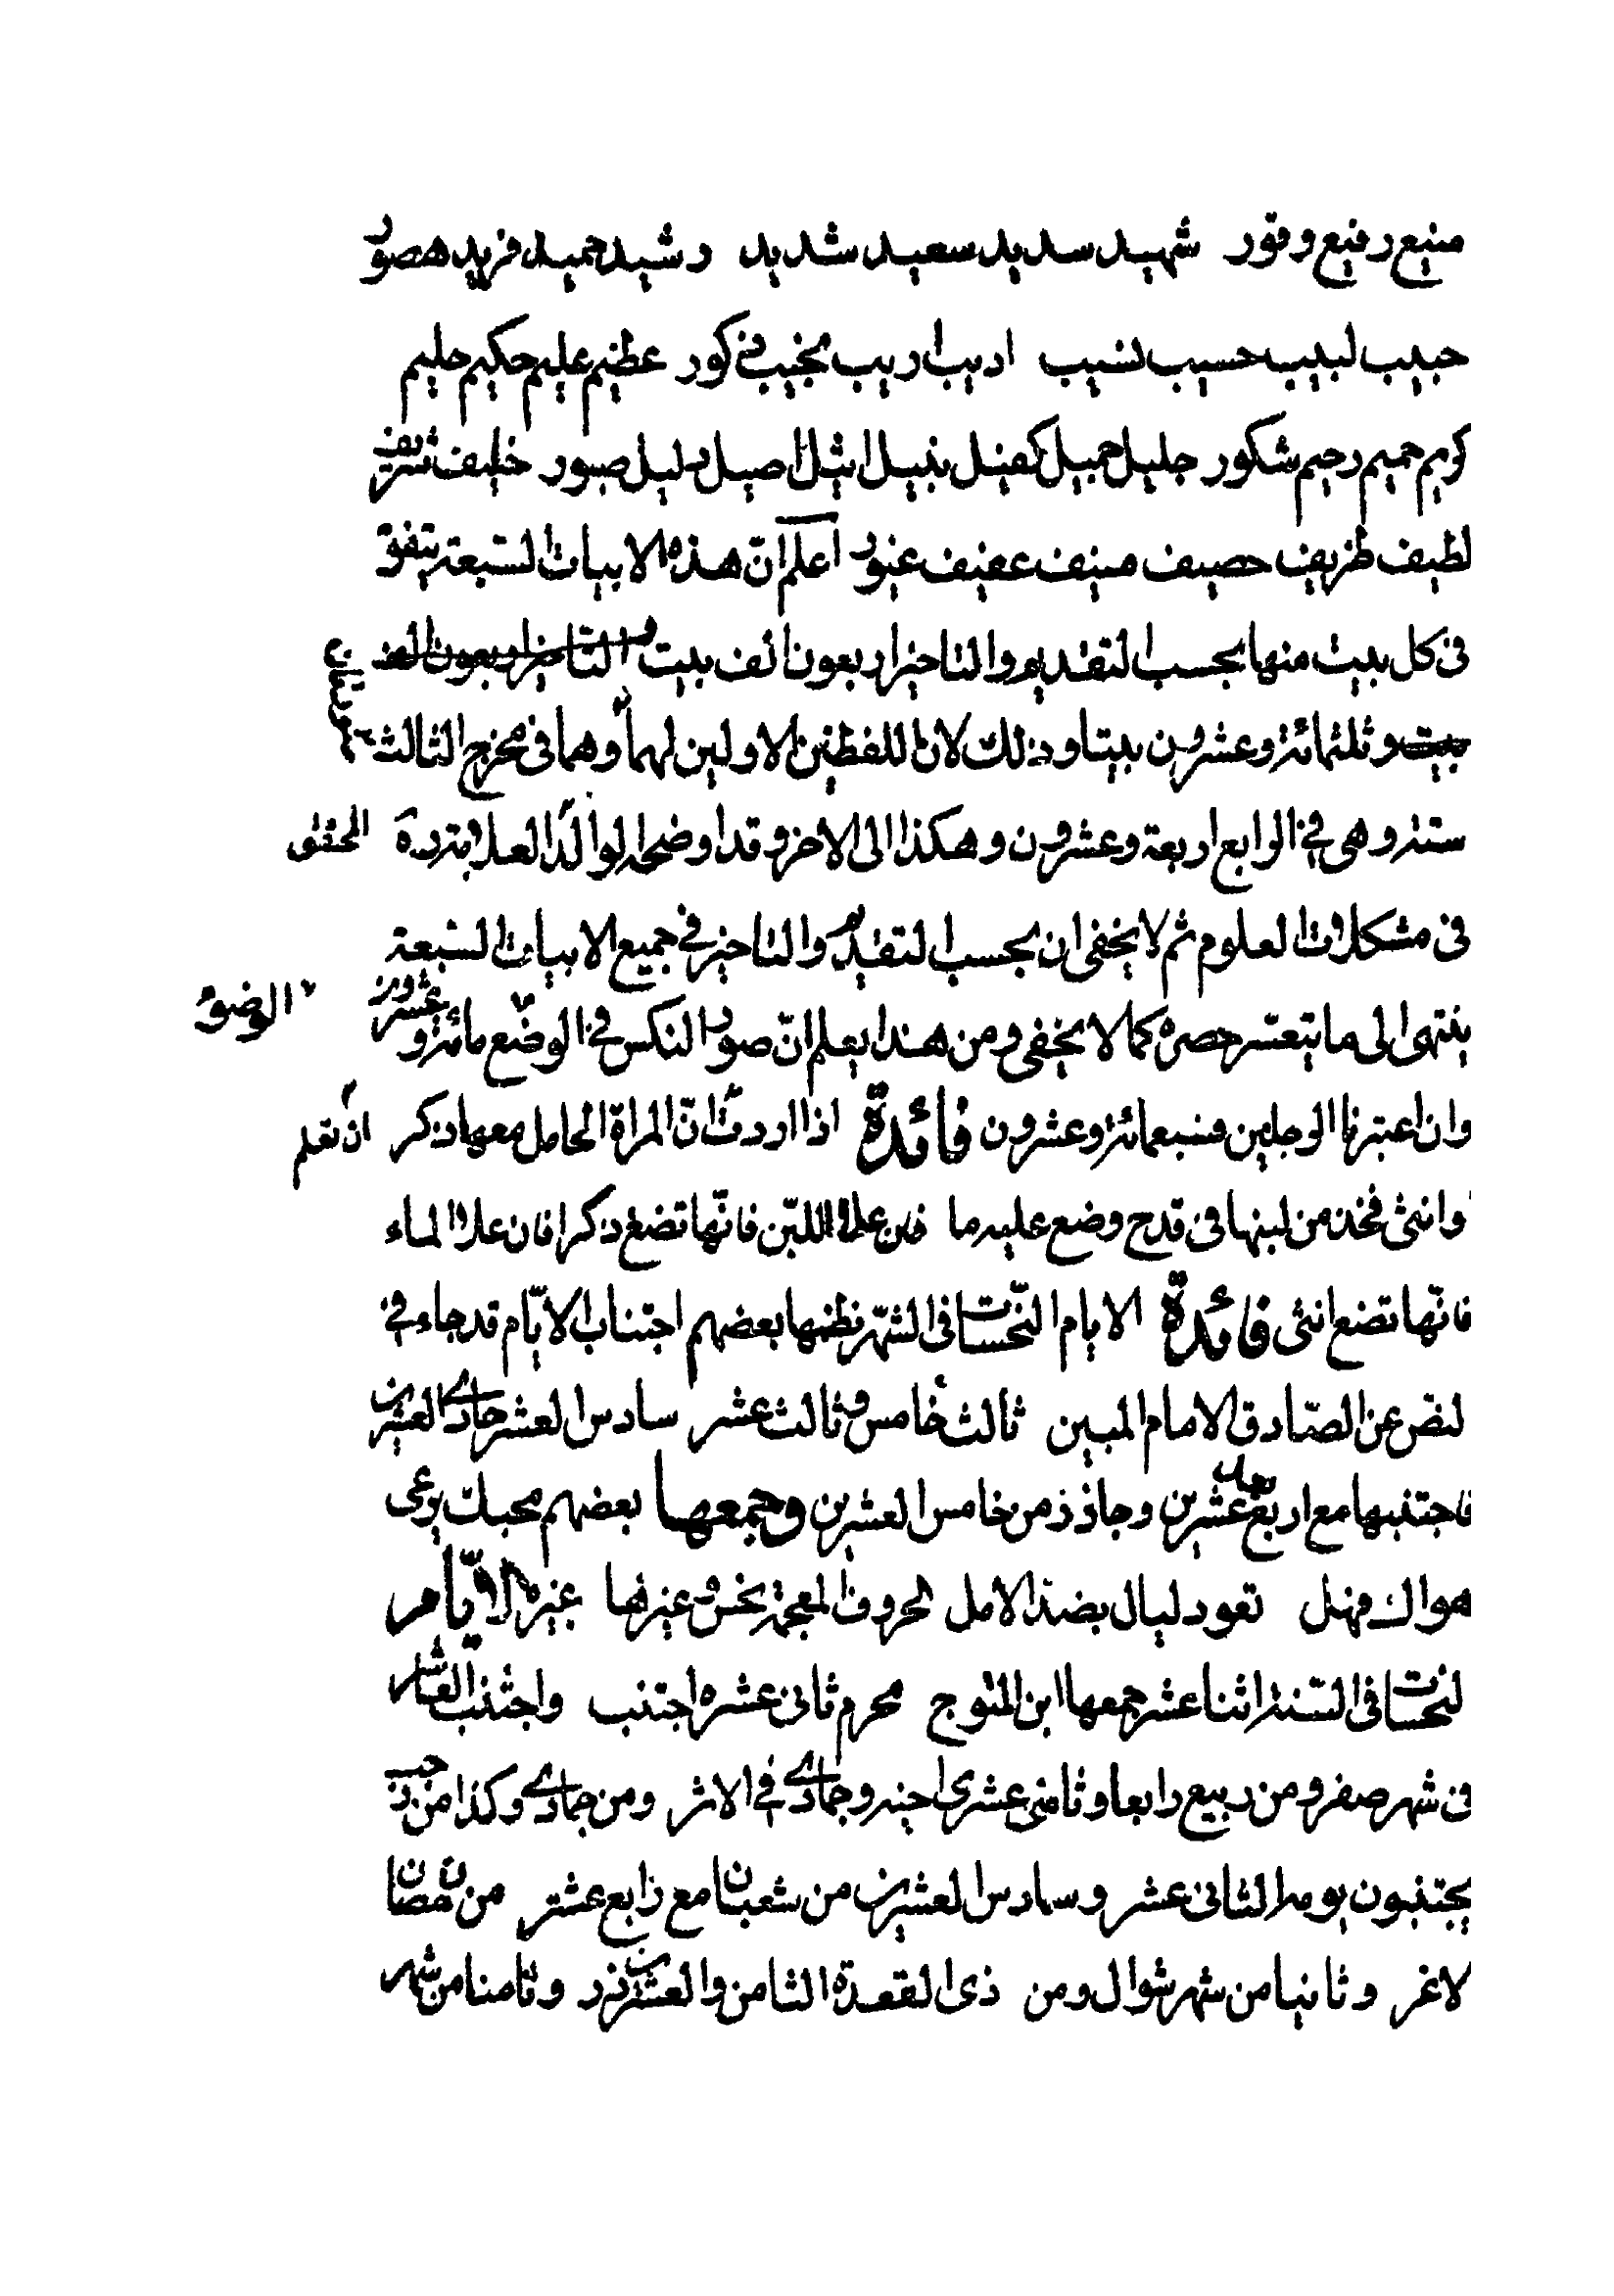 منيع رفيع وقور شهيد سديد سعيد شديد رشيد حميد فريد هصور
حبيب لبيب حسيب نسيب اديب اريب نجيب فخور عظيم عليم حكيم حليم
كريم حميم رحيم شكور جليل جميل كفيل نبيل اثيل اصيل دليل صبور خليف شريف
لطيف ظريف حصيف منيف عفيف غيور اعلم انّ هذه الابيات السبعة يتفق
فى كل بيت منها بحسب التقديم والتاخير اربعون الف بيت و التاخير اربعون الف
بيت وثلثمائة وعشرون بيتا وذلك لان اللفظين الاولين لهما وهما فى مخرج الثالث
ستة وهى فى الرابع اربعة وعشرون وهكذا الى الاخر وقد اوضحه الوالد العلامة المحقق
فى مشكلات العلوم ثم لا يخفى ان بحسب التقديم والتاخير فى جميع الابيات السبعة
ينتهى الى ما يتعسّر حصره كما لا يخفى ومن هذا يعلم انّ صور النكس فى الوضوء مائة وعشرون
الوضوء
وان اعتبرنا الرجلين فسبعمائة وعشرون فائدة اذا اردت انّ المراة الحامل معها ذكر
ان تعلم
وانثى فخذ من لبنها فى قدح وضع عليه ما فان علا اللبن فانّها تضع ذكرا فان علا الماء
فانّها تضع انثى فائدة الايام النّحسات فى الشهر نظمها بعضهم اجتناب الايّام قد جاء فى
لنص عن الصّادق الامام المبين ثالث خامس وثالث عشر سادس العشر حادى العشرين
فاجتنبها مع اربع عشرين وحاذر من خامس العشرين وجمعها بعضهم محبك يرعى
هواك فهل تعود ليال بضدّ الامل لحروف المعجمة نحس وغيرها غيره الايّام
لنحسات فى السنة اثنا عشر جمعها ابن المتوج محرم ثانى عشره اجتنب واجتنب العاشر
فى شهر صفر ومن ربيع رابعا وثامنى عشرى اخيه وجمادى فى الاثر ومن جمادى وكذا من رجب
يجتنبون يومه الثانى عشر وسادس العشرين من شعبان مع رابع عشر من رمضان
لاغر وثانيا من شهر شوال ومن ذى القعدة الثامن والعشرين ذر وثامنا من شهر